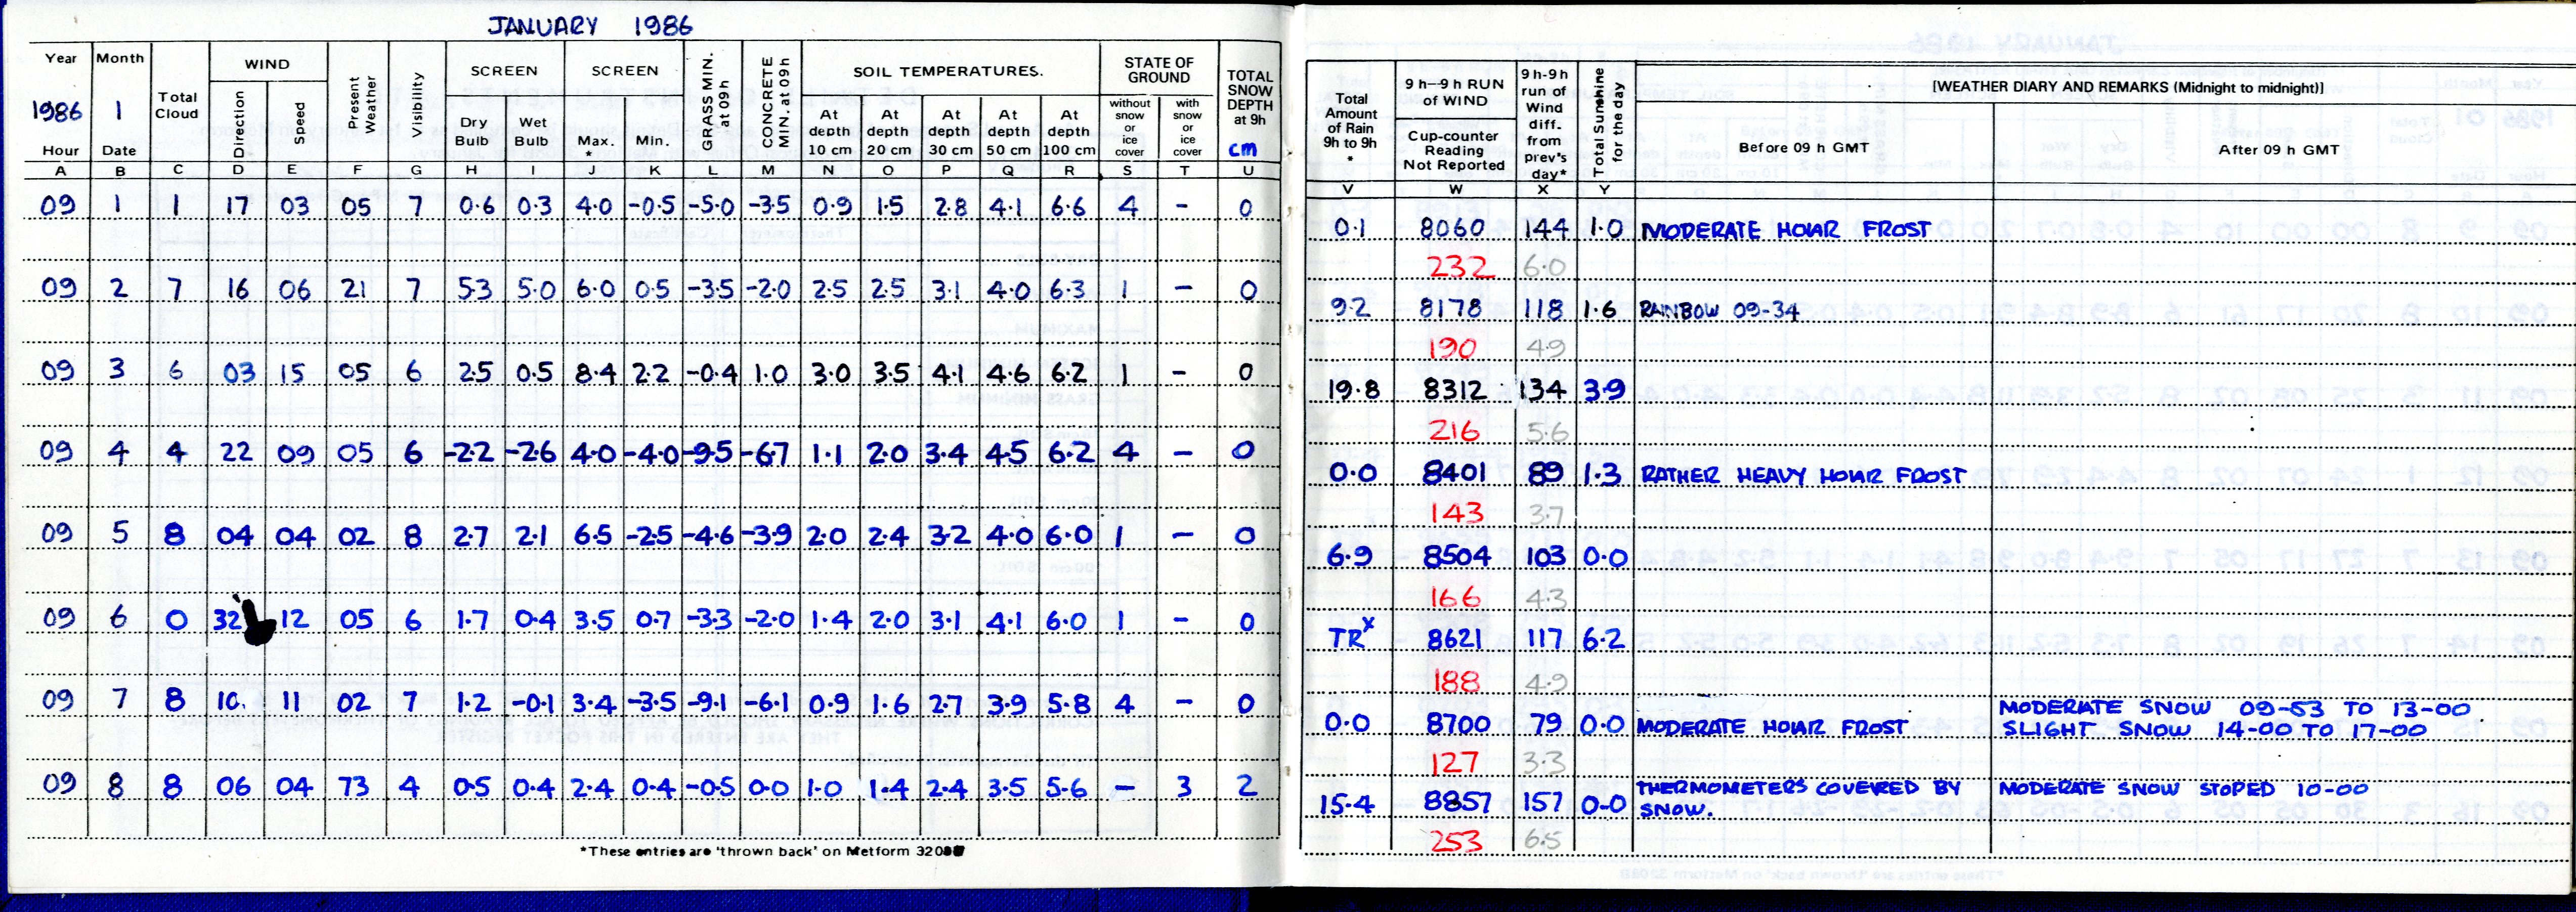 JANUARY 1986
Year Month Total Cloud WIND Present Weather Visibility SCREEN SCREEN GRASS MIN. at 09h CONCRETE MIN. at 09h SOIL TEMPERATURES. STATE OF GROUND TOTAL SNOW DEPTH at 9h
1986 1 Direction Speed Dry Bulb Wet Bulb Max. * Min. At depth 10 cm At depth 20 cm At depth 30 cm At depth 50 cm At depth 100 cm without snow or ice cover with snow or ice cover cm
Hour Date
A B C D E F G H I J K L M N O P Q R S T U
09 1 1 17 03 05 7 0.6 0.3 4.0 -0.5 -5.0 -3.5 0.9 1.5 2.8 4.1 6.6 4 - 0
09 2 7 16 06 21 7 5.3 5.0 6.0 0.5 -3.5 -2.0 2.5 2.5 3.1 4.0 6.3 1 - 0
09 3 6 03 15 05 6 2.5 0.5 8.4 2.2 -0.4 1.0 3.0 3.5 4.1 4.6 6.2 1 - 0
09 4 4 22 09 05 6 -2.2 -2.6 4.0 -4.0 -9.5 -6.7 1.1 2.0 3.4 4.5 6.2 4 - 0
09 5 8 04 04 02 8 2.7 2.1 6.5 -2.5 -4.6 -3.9 2.0 2.4 3.2 4.0 6.0 1 - 0
09 6 0 32 12 05 6 1.7 0.4 3.5 0.7 -3.3 -2.0 1.4 2.0 3.1 4.1 6.0 1 - 0
09 7 8 10. 11 02 7 1.2 -0.1 3.4 -3.5 -9.1 -6.1 0.9 1.6 2.7 3.9 5.8 4 - 0
09 8 8 06 04 73 4 0.5 0.4 2.4 0.4 -0.5 0.0 1.0 1.4 2.4 3.5 5.6 - 3 2
*These entries are 'thrown back' on Metform 3208
Total Amount of Rain 9h to 9h * 9 h—9 h RUN of WIND Cup-counter Reading Not Reported 9 h-9h run of Wind diff. from prev's day* Total Sunshine for the day [WEATHER DIARY AND REMARKS (Midnight to midnight)]
Before 09 h GMT After 09 h GMT
V W X Y
0.1 8060 144 1.0 MODERATE HOAR FROST
232 6.0
9.2 8178 118 1.6 RAINBOW 09-34
190 4.9
19.8 8312 134 3.9
216 5.6
0.0 8401 89 1.3 RATHER HEAVY HOAR FROST
143 3.7
6.9 8504 103 0.0
166 4.3
TRx 8621 117 6.2
188 4.9
MODERATE SNOW 09-53 TO 13-00
0.0 8700 79 0.0 MODERATE HOAR FROST SLIGHT SNOW 14-00 TO 17-00
127 3.3
THERMOMETERS COVERED BY MODERATE SNOW STOPED 10-00
15.4 8857 157 0.0 SNOW.
253 6.5